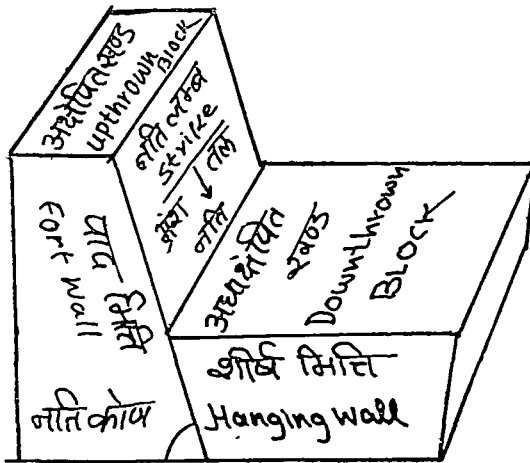 अधोपित खण्ड
upthrown
BLOCK
नति लम्ब
Strike
भ्रंश तल
नति
पाद भित्ति
Fort wall
अधाक्षेपित
खण्ड
Downthrown
BLOCK
शीर्ष भित्ति
Hanging wall
नति कोण